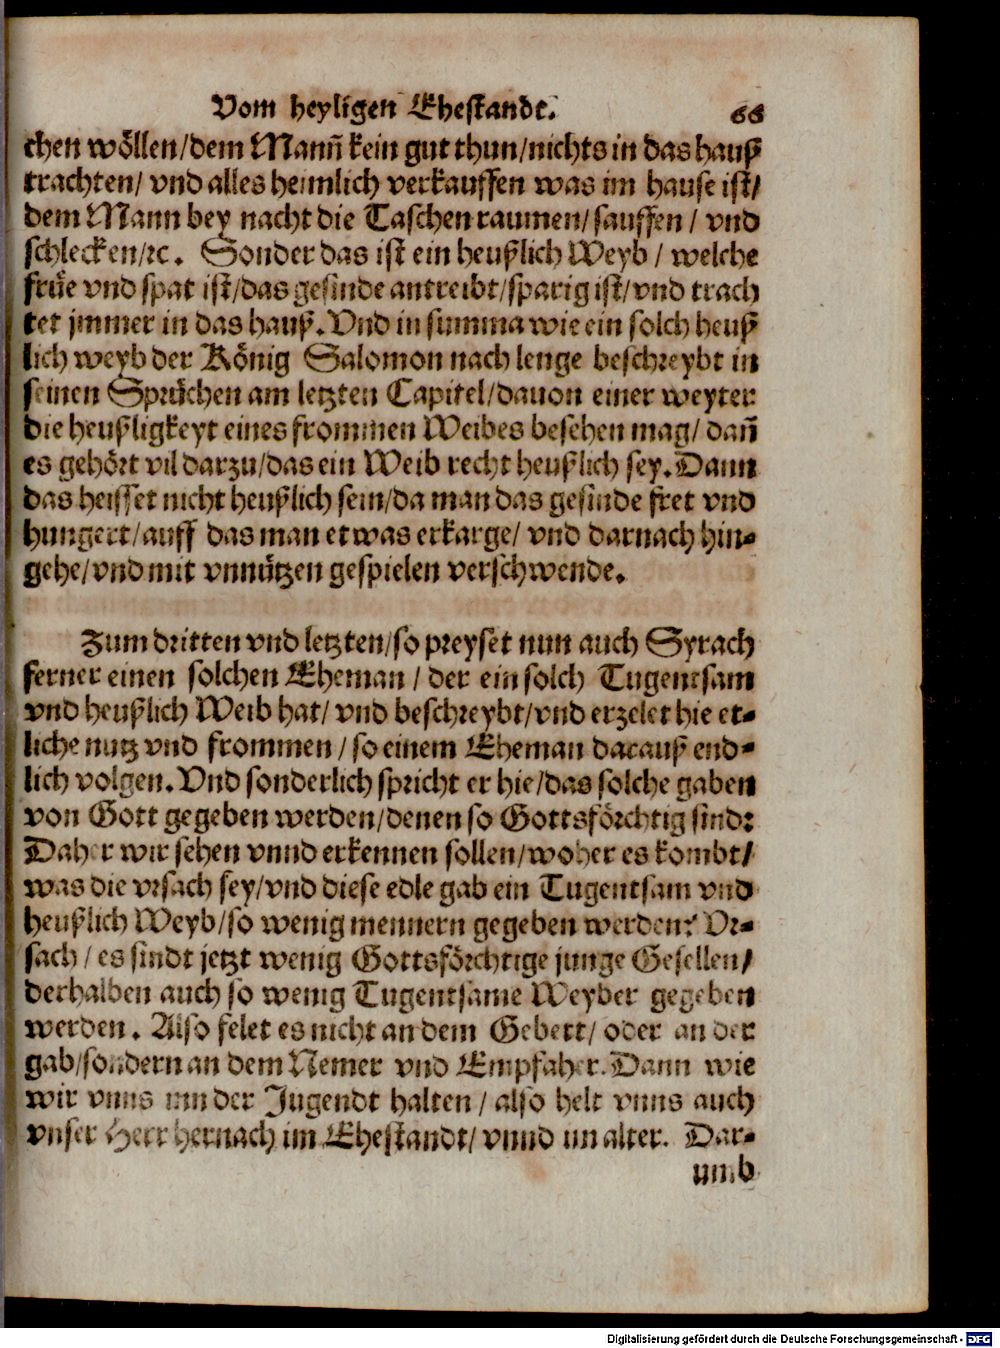 Vom heyligen Ehestandt. 66
chen wöllen/dem Mann̄ kein gut thun/nichts in das hauß
trachten/ vnd alles heimlich verkauffen was im hause ist/
dem Mann bey nacht die Taschen raumen/sauffen/ vnd
schlecken/ꝛc. Sonder das ist ein heußlich Weyb/ welche
früe vnd spat ist/das gesinde antreibt/sparig ist/vnd trach
tet jmmer in das hauß. Vnd in summa wie ein solch heuß
lich weyb der König Salomon nach lenge beschreybt in
seinen Sprüchen am letzten Capitel/dauon einer weyter
die heußligkeyt eines frommen Weibes besehen mag/ dan̄
es gehört vil darzu/das ein Weib recht heußlich sey. Dann
das heisset nicht heußlich sein/da man das gesinde fret vnd
hungert/auff das man etwas erkarge/ vnd darnach hin-
gehe/vnd mit vnnützen gespielen verschwende.
Zum dritten vnd letzten/so preyset nun auch Syrach
ferner einen solchen Eheman/ der ein solch Tugentsam
vnd heußlich Weib hat/ vnd beschreybt/vnd erzelet hie et-
liche nutz vnd frommen/so einem Eheman darauß end-
lich volgen. Vnd sonderlich spricht er hie/das solche gaben
von Gott gegeben werden/denen so Gottsförchtig sind:
Daher wir sehen vnnd erkennen sollen/woher es kombt/
was die vrsach sey/vnd diese edle gab ein Tugentsam vnd
heußlich Weyb/so wenig mennern gegeben werden? Vr-
sach/ es sindt jetzt wenig Gottsförchtige junge Gesellen/
derhalben auch so wenig Tugentsame Weyber gegeben
werden. Also felet es nicht an dem Gebert/ oder an der
gab/sondern an dem Nemer vnd Empfaher. Dann wie
wir vnns inn der Jugendt halten/ also helt vnns auch
vnser Herr hernach im Ehestandt/ vnnd im alter. Dar-
umb
Digitalisierung gefördert durch die Deutsche Forschungsgemeinschaft - DFG